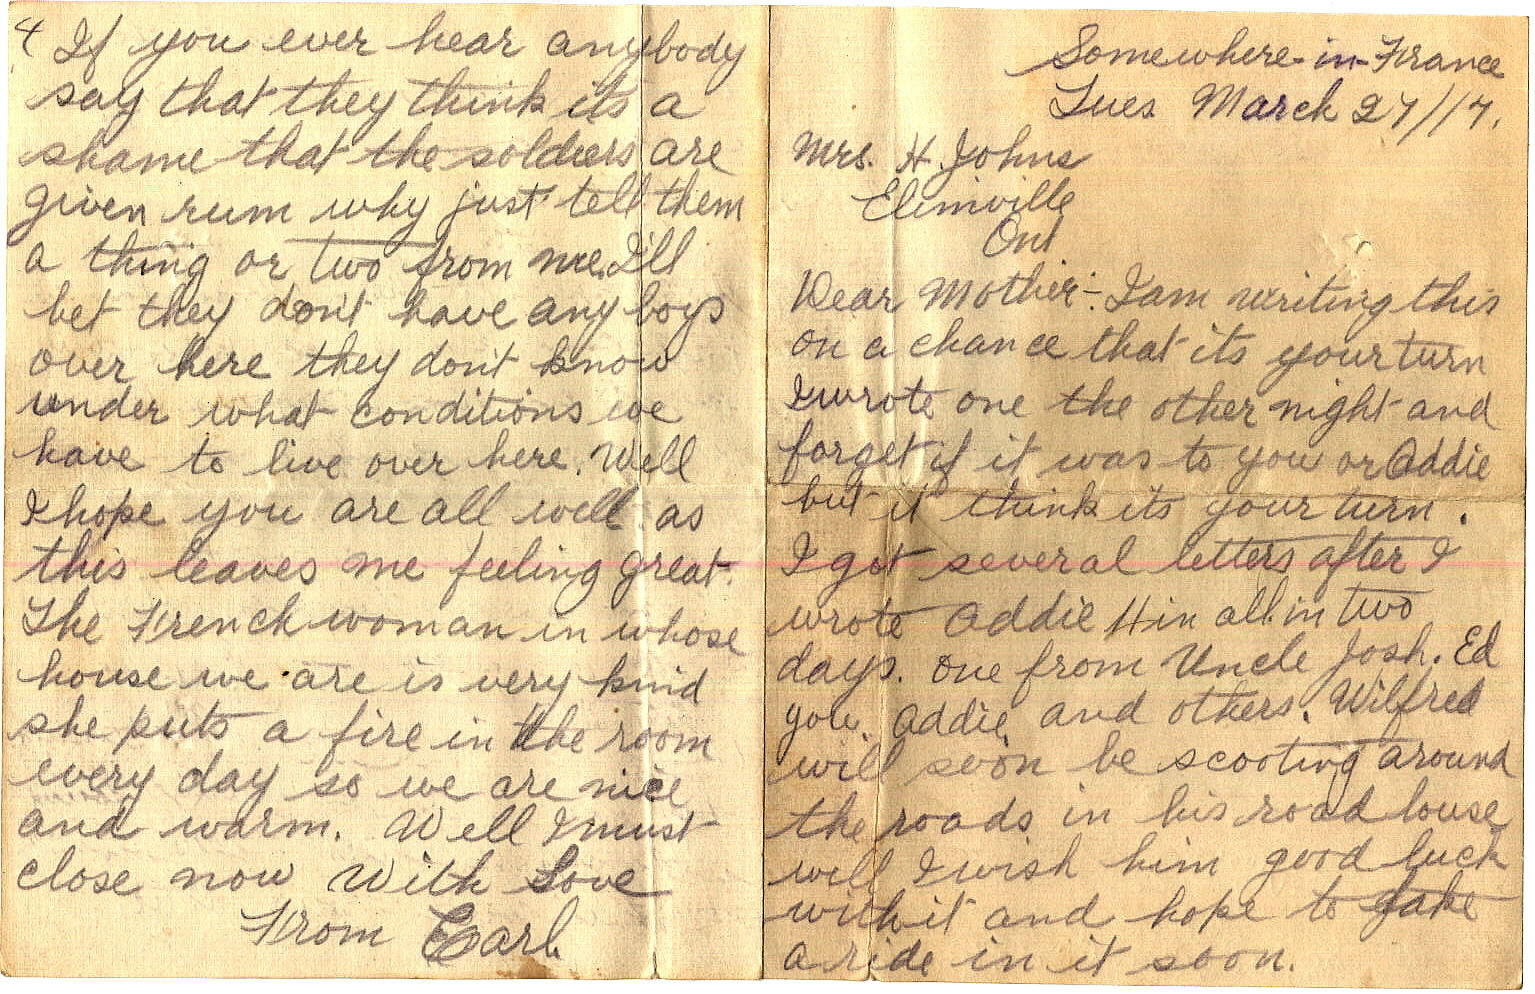 Somewhere-in-France
Tues March 27/17.
Mrs. H Johns
Elimville
Ont
Dear Mother:- I am writing this
on a chance that its your turn
I wrote one the other night and
forget if it was to you or Addie
but it think its your turn.
I got several letters after I
wrote Addie 11 in all in two
days. One from Uncle Josh. Ed
you, Addie, and others. Wilfred
will soon be scooting around
the roads in his road louse
well I wish him good luck
with it and hope to take
a ride in it soon.
4 If you ever hear anybody
say that they think its a
shame that the soldiers are
given rum why just tell them
a thing or two from me. I'll
bet they don't have any boys
over here they don't know
under what conditions we
have to live over here. Well
I hope you are all well as
this leaves me feeling great.
The French woman in whose
house we are is very kind
she puts a fire in the room
every day so we are nice
and warm. Well I must
close now With Love
From Earl.